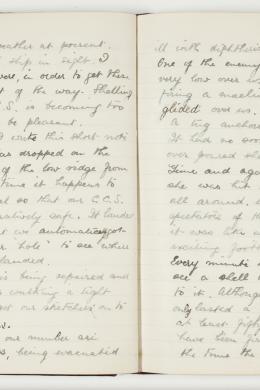 weather at present.
ship in sight. I
were, in order to get these
out of the way. Shelling
C.S. is becoming too
be pleasant.
I write this short note
was dropped on the
of the low ridge from
time it happens to
so that our C.C.S.
comparatively safe. It landed
but we automatically got
our "hole" to see where
landed.
is being repaired and
a tight
our sketches on to
our number are
being evacuated
ill with diphtheria
One of the enemy
very low over us
firing a machine
glided over us.
A tug anchored
It had no sooner
over poured sh
Time and again
she was hit
all around.
spectators of th
it was like a
exciting foot
Every minute
see a shell
to it. Although
only lasted a
at least fifty
have been fir
the time the